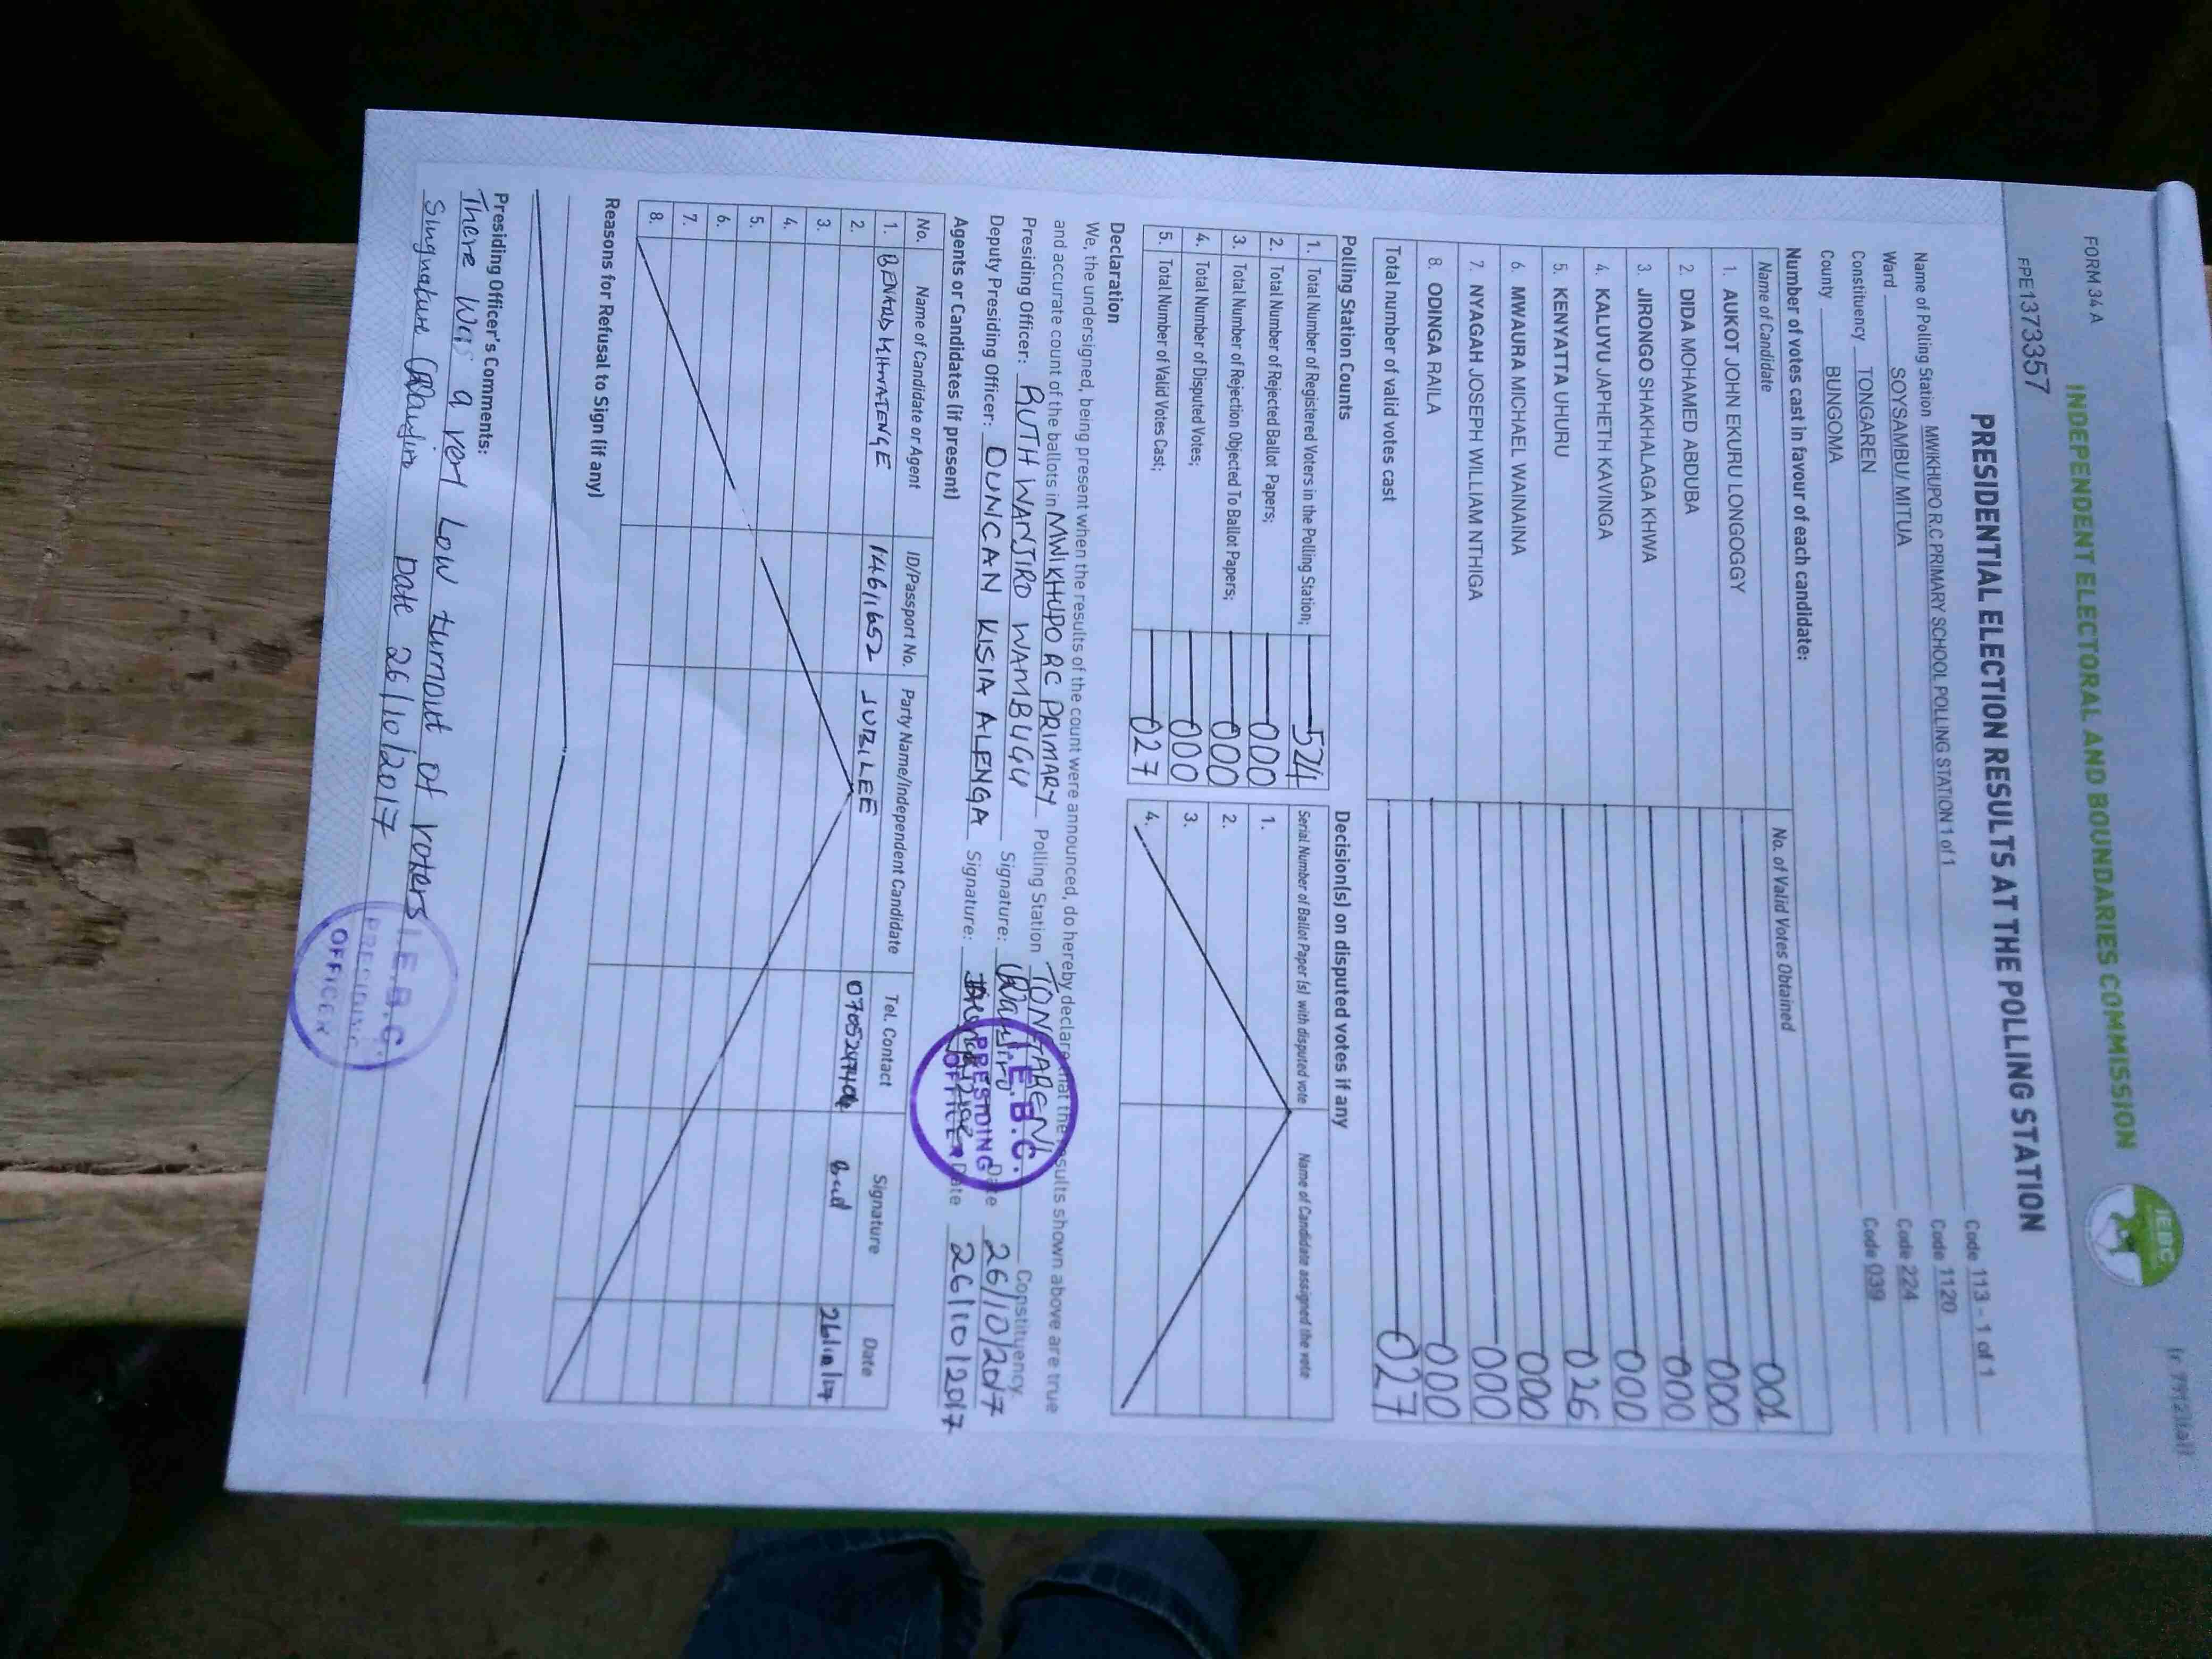 FORM 34 A
INDEPENDENT ELECTORAL AND BOUNDARIES COMMISSION
IEBC
FPE137357
PRESIDENTIAL ELECTION RESULTS AT THE POLLING STATION
Name of Polling Station MWIKHUPO R.C PRIMARY SCHOOL POLLING STATION 1 of 1 Code 113 - 1 of 1
Ward SOYSAMBU/ MITUA Code 1120
Constituency TONGAREN Code 224
County BUNGOMA Code 039
Number of votes cast in favour of each candidate:
Name of Candidate No. of Valid Votes Obtained
1. AUKOT JOHN EKURU LONGOGGY 001
2. DIDA MOHAMED ABDUBA 000
3. JIRONGO SHAKHALAGA KHWA 000
4. KALUYU JAPHETH KAVINGA 000
5. KENYATTA UHURU 026
6. MWAURA MICHAEL WAINAINA 000
7. NYAGAH JOSEPH WILLIAM NTHIGA 000
8. ODINGA RAILA 000
Total number of valid votes cast 027
Polling Station Counts
1. Total Number of Registered Voters in the Polling Station; 524
2. Total Number of Rejected Ballot Papers; 000
3. Total Number of Rejection Objected To Ballot Papers; 000
4. Total Number of Disputed Votes; 000
5. Total Number of Valid Votes Cast; 027
Decision(s) on disputed votes if any
Serial Number of Ballot Paper (s) with disputed vote Name of Candidate assigned the vote
1.
2.
3.
4.
Declaration
We, the undersigned, being present when the results of the count were announced, do hereby declare that the results shown above are true
and accurate count of the ballots in MWIKHUPO RC PRIMARY Polling Station TONGAREN Constituency.
Presiding Officer: RUTH WANJIRO WAMBUGU Signature: Wanjiro Date 26/10/2017
Deputy Presiding Officer: DUNCAN KISIA ALENGA Signature: Date 26/10/2017
I.E.B.C.
PRESIDING
OFFICER
Agents or Candidates (if present)
No. Name of Candidate or Agent ID/Passport No. Party Name/Independent Candidate Tel. Contact Signature Date
1. 14611652 JUBILEE 26/10/17
2.
3.
4.
5.
6.
7.
8.
Reasons for Refusal to Sign (if any)
Presiding Officer's Comments:
There Was a very Low turnout of voters
Singnature Wanjiro Date 26/10/2017
I.E.B.C.
PRESIDING
OFFICER